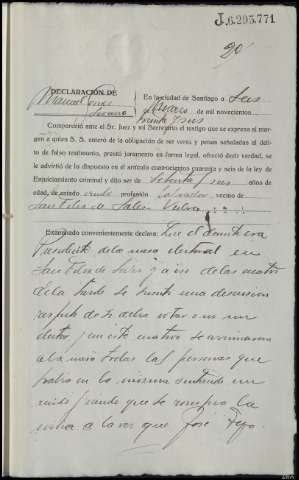 J.6.295.771
20
DECLARACIÓN DE
Manuel
En la ciudad de Santiago a Seis
de Marzo de mil novecientos
treinta y seis
Compareció ante el Sr. Juez y mi Secretario el testigo que se expresa al margen
a quien S. S. enteró de la obligación de ser veraz y penas señaladas al delito
de falso testimonio, prestó juramento en forma legal, ofreció decir verdad, se
le advirtió de lo dispuesto en el artículo cuatrocientos cuarenta y seis de la ley de
Enjuiciamiento criminal y dijo ser de y seis años de
edad, de estado viudo profesión labrador vecino de
San Felix de Sales Vedra
Examinado convenientemente declara: Que el dicente era
Presidente de la mesa electoral en
San Felix de Sales y a eso de las cuatro
de la tarde se sintió una discusion
respecto de si debia votar o no un
elector, y con este motivo se arrimaron
a la mesa todas las personas que
habia en la misma sintiendo un
ruido grande que se rompio la
urna a la vez que José Rego